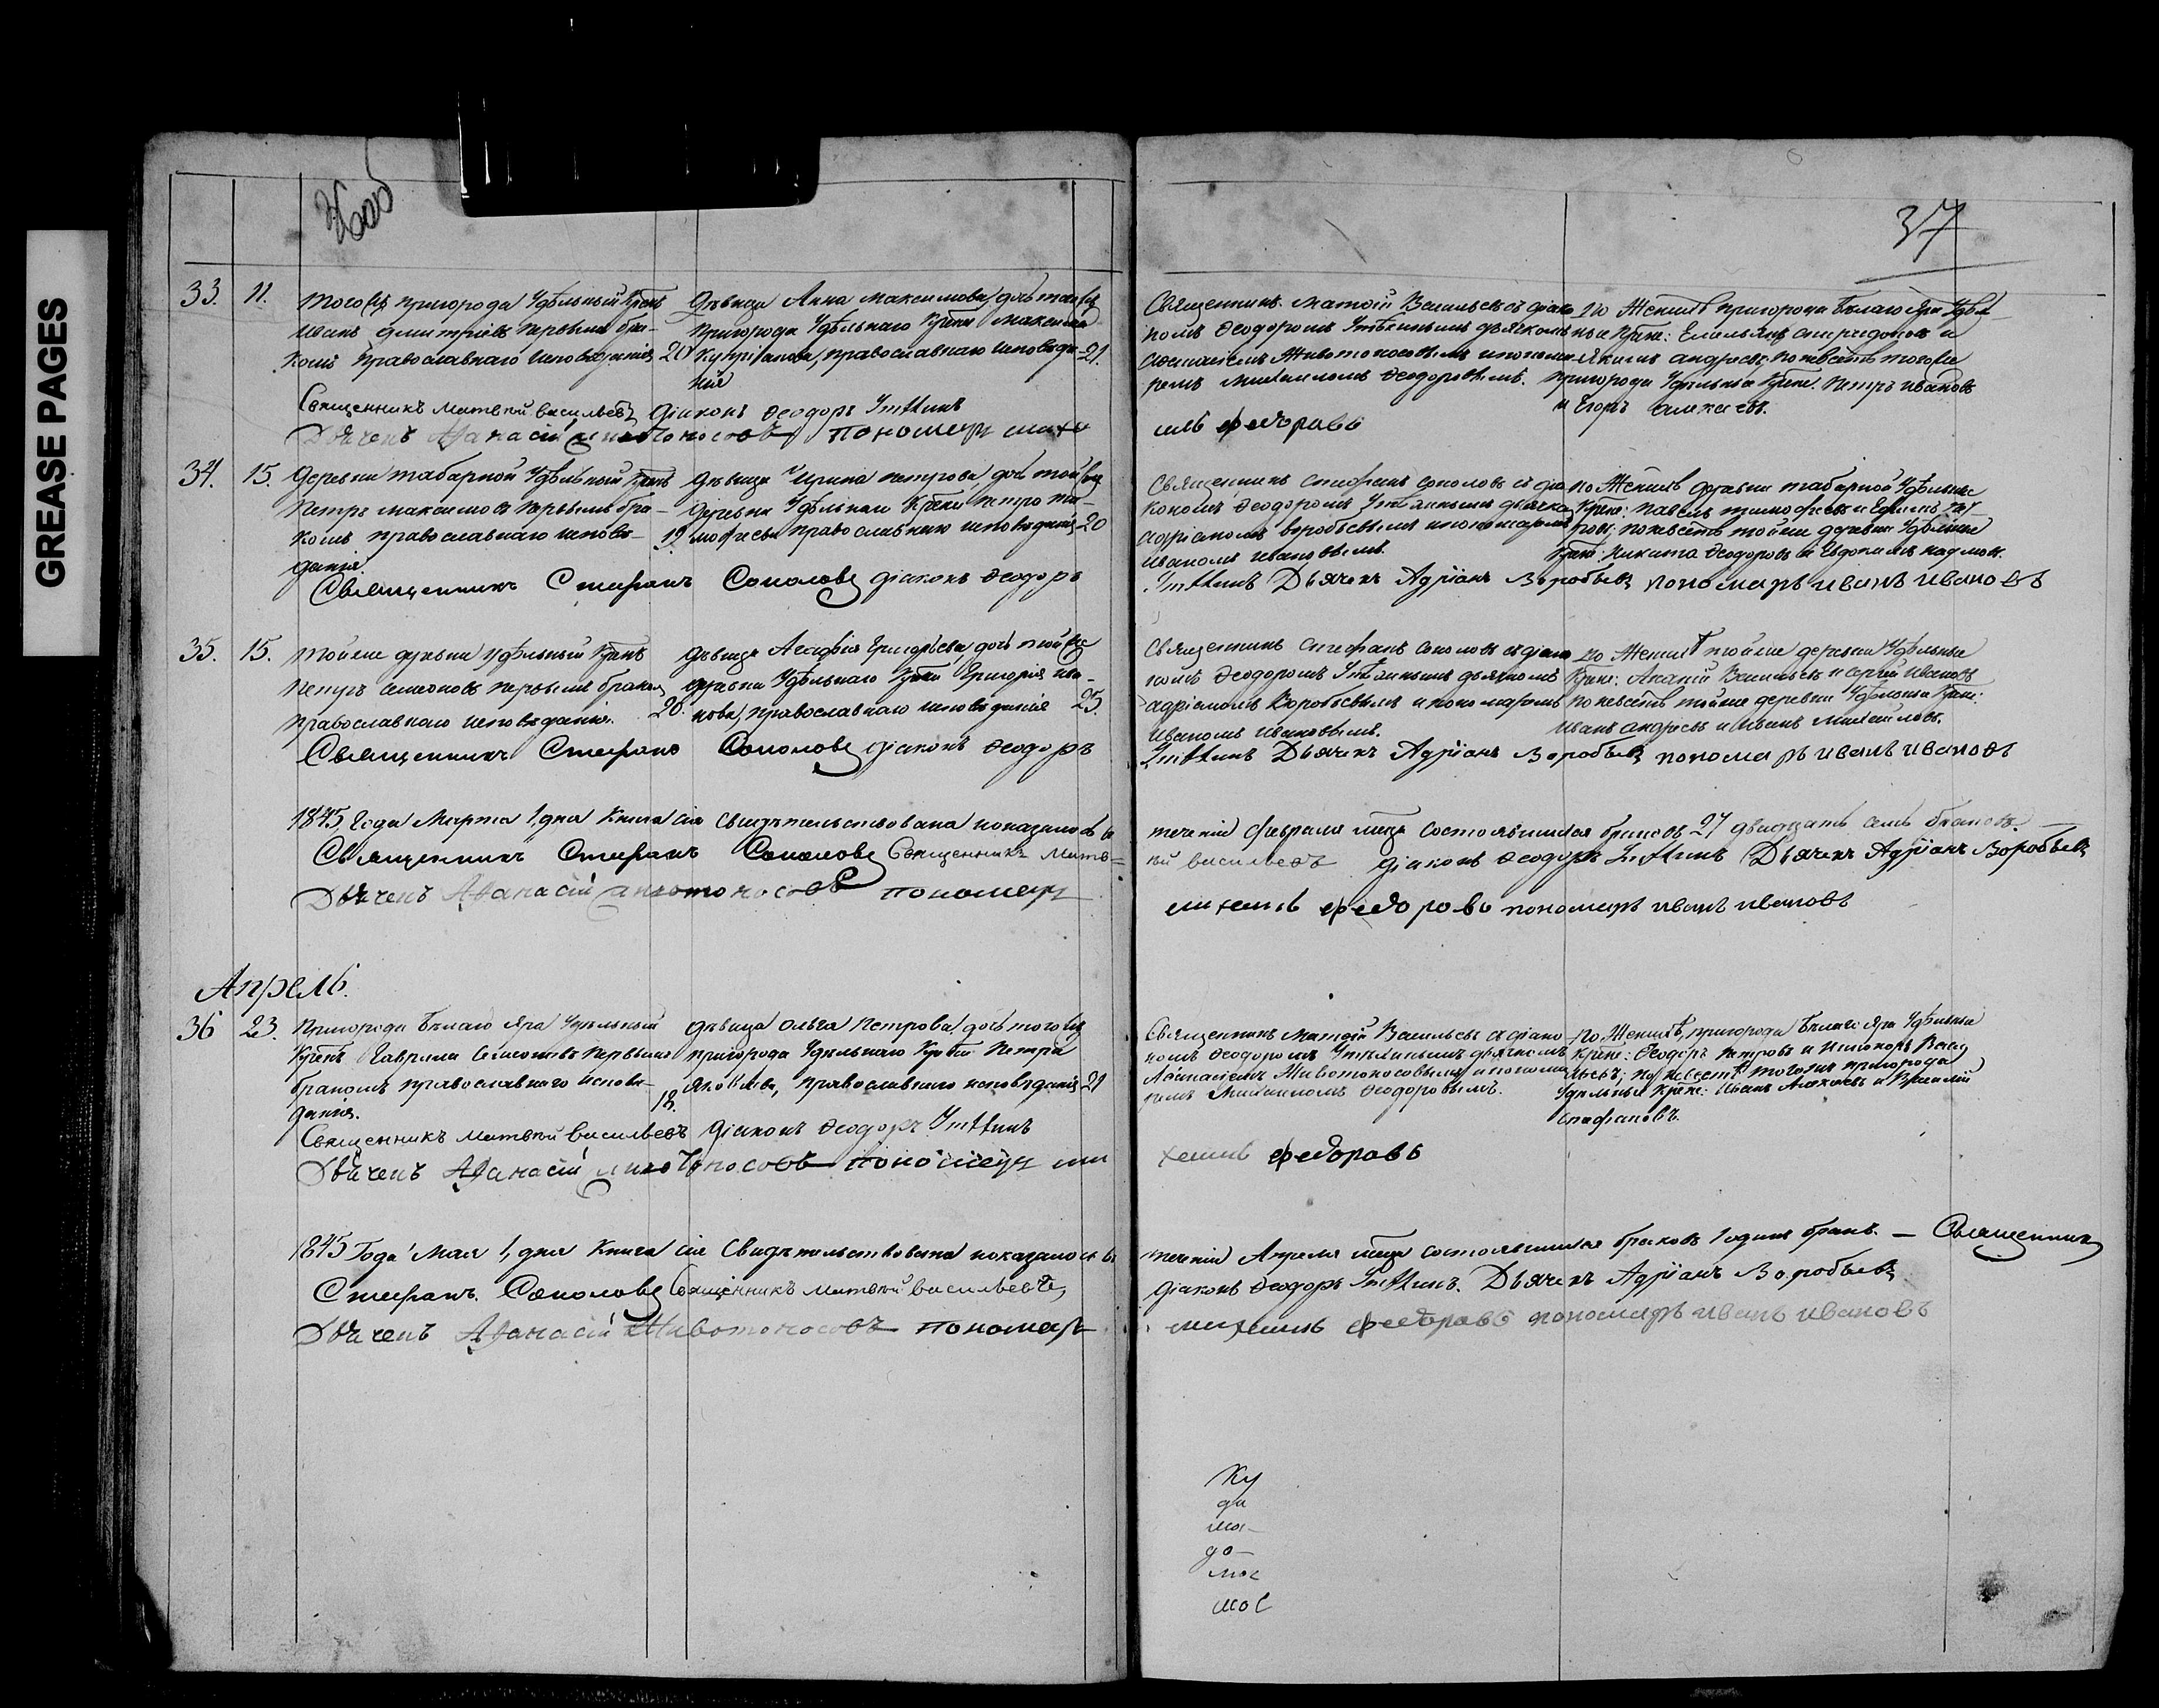 GREASE PAGES
37
33. 11. тогожъ пригорода Удѣльный Крест: Иванъ Дмитріевъ первымъ бра-
комъ православнаго исповѣданія 20
дѣвица Анна Максимова, дочь тогожъ
пригорода Удѣльнаго Крест: Максима
Купріянова, православнаго исповѣда- 21.
нія
Священникъ Матѳій Васильевъ съ діако
номъ Ѳеодоромъ Утѣхинымъ дьячкомъ
Аѳанасіемъ Животоносовымъ и понома
ремъ Михаиломъ Ѳеодоровымъ.
По Женихѣ пригорода Бѣлаго Яра Удѣл
ные Крест: Емельянъ Спиридоновъ и
Якимъ Андреевъ; по невѣстѣ тогоже
пригорода Удѣльные Крест: Петръ Ивановъ
и Егоръ Алексѣевъ.
Священникъ Матвѣй Васильевъ Діаконъ Ѳеодоръ Утѣхинъ
Дьячекъ Аѳанасій Животоносовъ Пономарь Миха
илъ Федоровъ
34. 15. Деревни Табарной Удѣльный Крест:
Петръ Максимовъ первымъ бра-
комъ православнаго исповѣ- 19.
данія.
дѣвица Ирина Петрова, дочь тойжъ
деревни Удѣльнаго Крест: Петра Ти-
мофѣева православнаго исповѣданія 20
Священникъ Стефанъ Соколовъ съ діа
кономъ Ѳеодоромъ Утѣхинымъ дьячко
Адріаномъ Воробьевымъ и пономаремъ
Иваномъ Ивановымъ.
по Женихѣ деревни Табарной Удѣльные
Крест: Павелъ Тимофѣевъ и Ефимъ Пет
ровъ; по невѣстѣ тойже деревни Удѣльные
Крест: Никита Ѳеодоровъ и Евдокимъ
Священникъ Стефанъ Соколовъ Діаконъ Ѳеодоръ
Утѣхинъ Дьячекъ Адріанъ Воробьевъ пономарь Иванъ Ивановъ
35. 15. Тойже деревни Удѣльный Крест:
Петръ Семеновъ первымъ бракомъ
православнаго исповѣданія. 20.
дѣвица Агафія Григорьева, дочь тойже
деревни Удѣльнаго Крест: Григорія Ива-
нова, православнаго исповѣданія 25.
Священникъ Стефанъ Соколовъ съ діако
номъ Ѳеодоромъ Утѣхинымъ дьячкомъ
Адріаномъ Воробьевымъ и пономаремъ
Иваномъ Ивановымъ.
По Женихѣ тойже деревни Удѣльные
Крест: Ананій Васильевъ и Сергій Ивановъ
по невѣстѣ тойже деревни Удѣльные Крест:
Иванъ Андреевъ и Иванъ Михайловъ.
Священникъ Стефанъ Соколовъ Діаконъ Ѳеодоръ
Утѣхинъ Дьячекъ Адріанъ Воробьевъ пономарь Иванъ Ивановъ
1845 Года Марта 1, дня Книга сія свидѣтельствована показалось въ
теченіи Февраля мѣсяца состоявшихся браковъ 27 двадцать семь браковъ. —
Священникъ Стефанъ Соколовъ Священникъ Матв=
ѣй Васильевъ Діаконъ Ѳеодоръ Утѣхинъ Дьячекъ Адріанъ Воробьевъ
Дьячекъ Аѳанасій Животоносовъ пономарь
михаилъ федоровъ пономарь Иванъ Ивановъ
Апрель.
36 23. Пригорода Бѣлаго Яра Удѣльный
Крест: Гаврила Семеновъ первымъ
бракомъ православнаго исповѣ-
данія. 18.
дѣвица Ольга Петрова, дочь тогожъ
пригорода Удѣльнаго Крест: Петра
Яковлева, православнаго исповѣданія 21
Священникъ Матѳій Васильевъ съ діако
номъ Ѳеодоромъ Утѣхинымъ дьячкомъ
Аѳанасіемъ Животоносовымъ и понома
ремъ Михаиломъ Ѳеодоровымъ.
По Женихѣ, пригорода Бѣлаго Яра Удѣльные
Крест: Ѳеодоръ Петровъ и Никоноръ Васи
льевъ; по невѣстѣ тогожъ пригорода
Удѣльные Крест: Иванъ Алексѣевъ и Василій
Стефановъ.
Священникъ Матвѣй Васильевъ Діаконъ Ѳеодоръ Утѣхинъ
Дьячекъ Аѳанасій Животоносовъ пономарь ми
хаилъ федоровъ
1845 Года Мая 1, дня Книга сія Свидѣтельствована показалось въ
теченіи Апреля мѣсяца состоявшихся браковъ 1 одинъ бракъ. — Священникъ
Стефанъ Соколовъ Священникъ Матвѣй Васильевъ
Діаконъ Ѳеодоръ Утѣхинъ. Дьячекъ Адріанъ Воробьевъ
Дьячекъ Аѳанасій Животоносовъ пономарь
михаилъ федоровъ пономарь Иванъ Ивановъ
Ку
да
мо-
до-
мос
мос